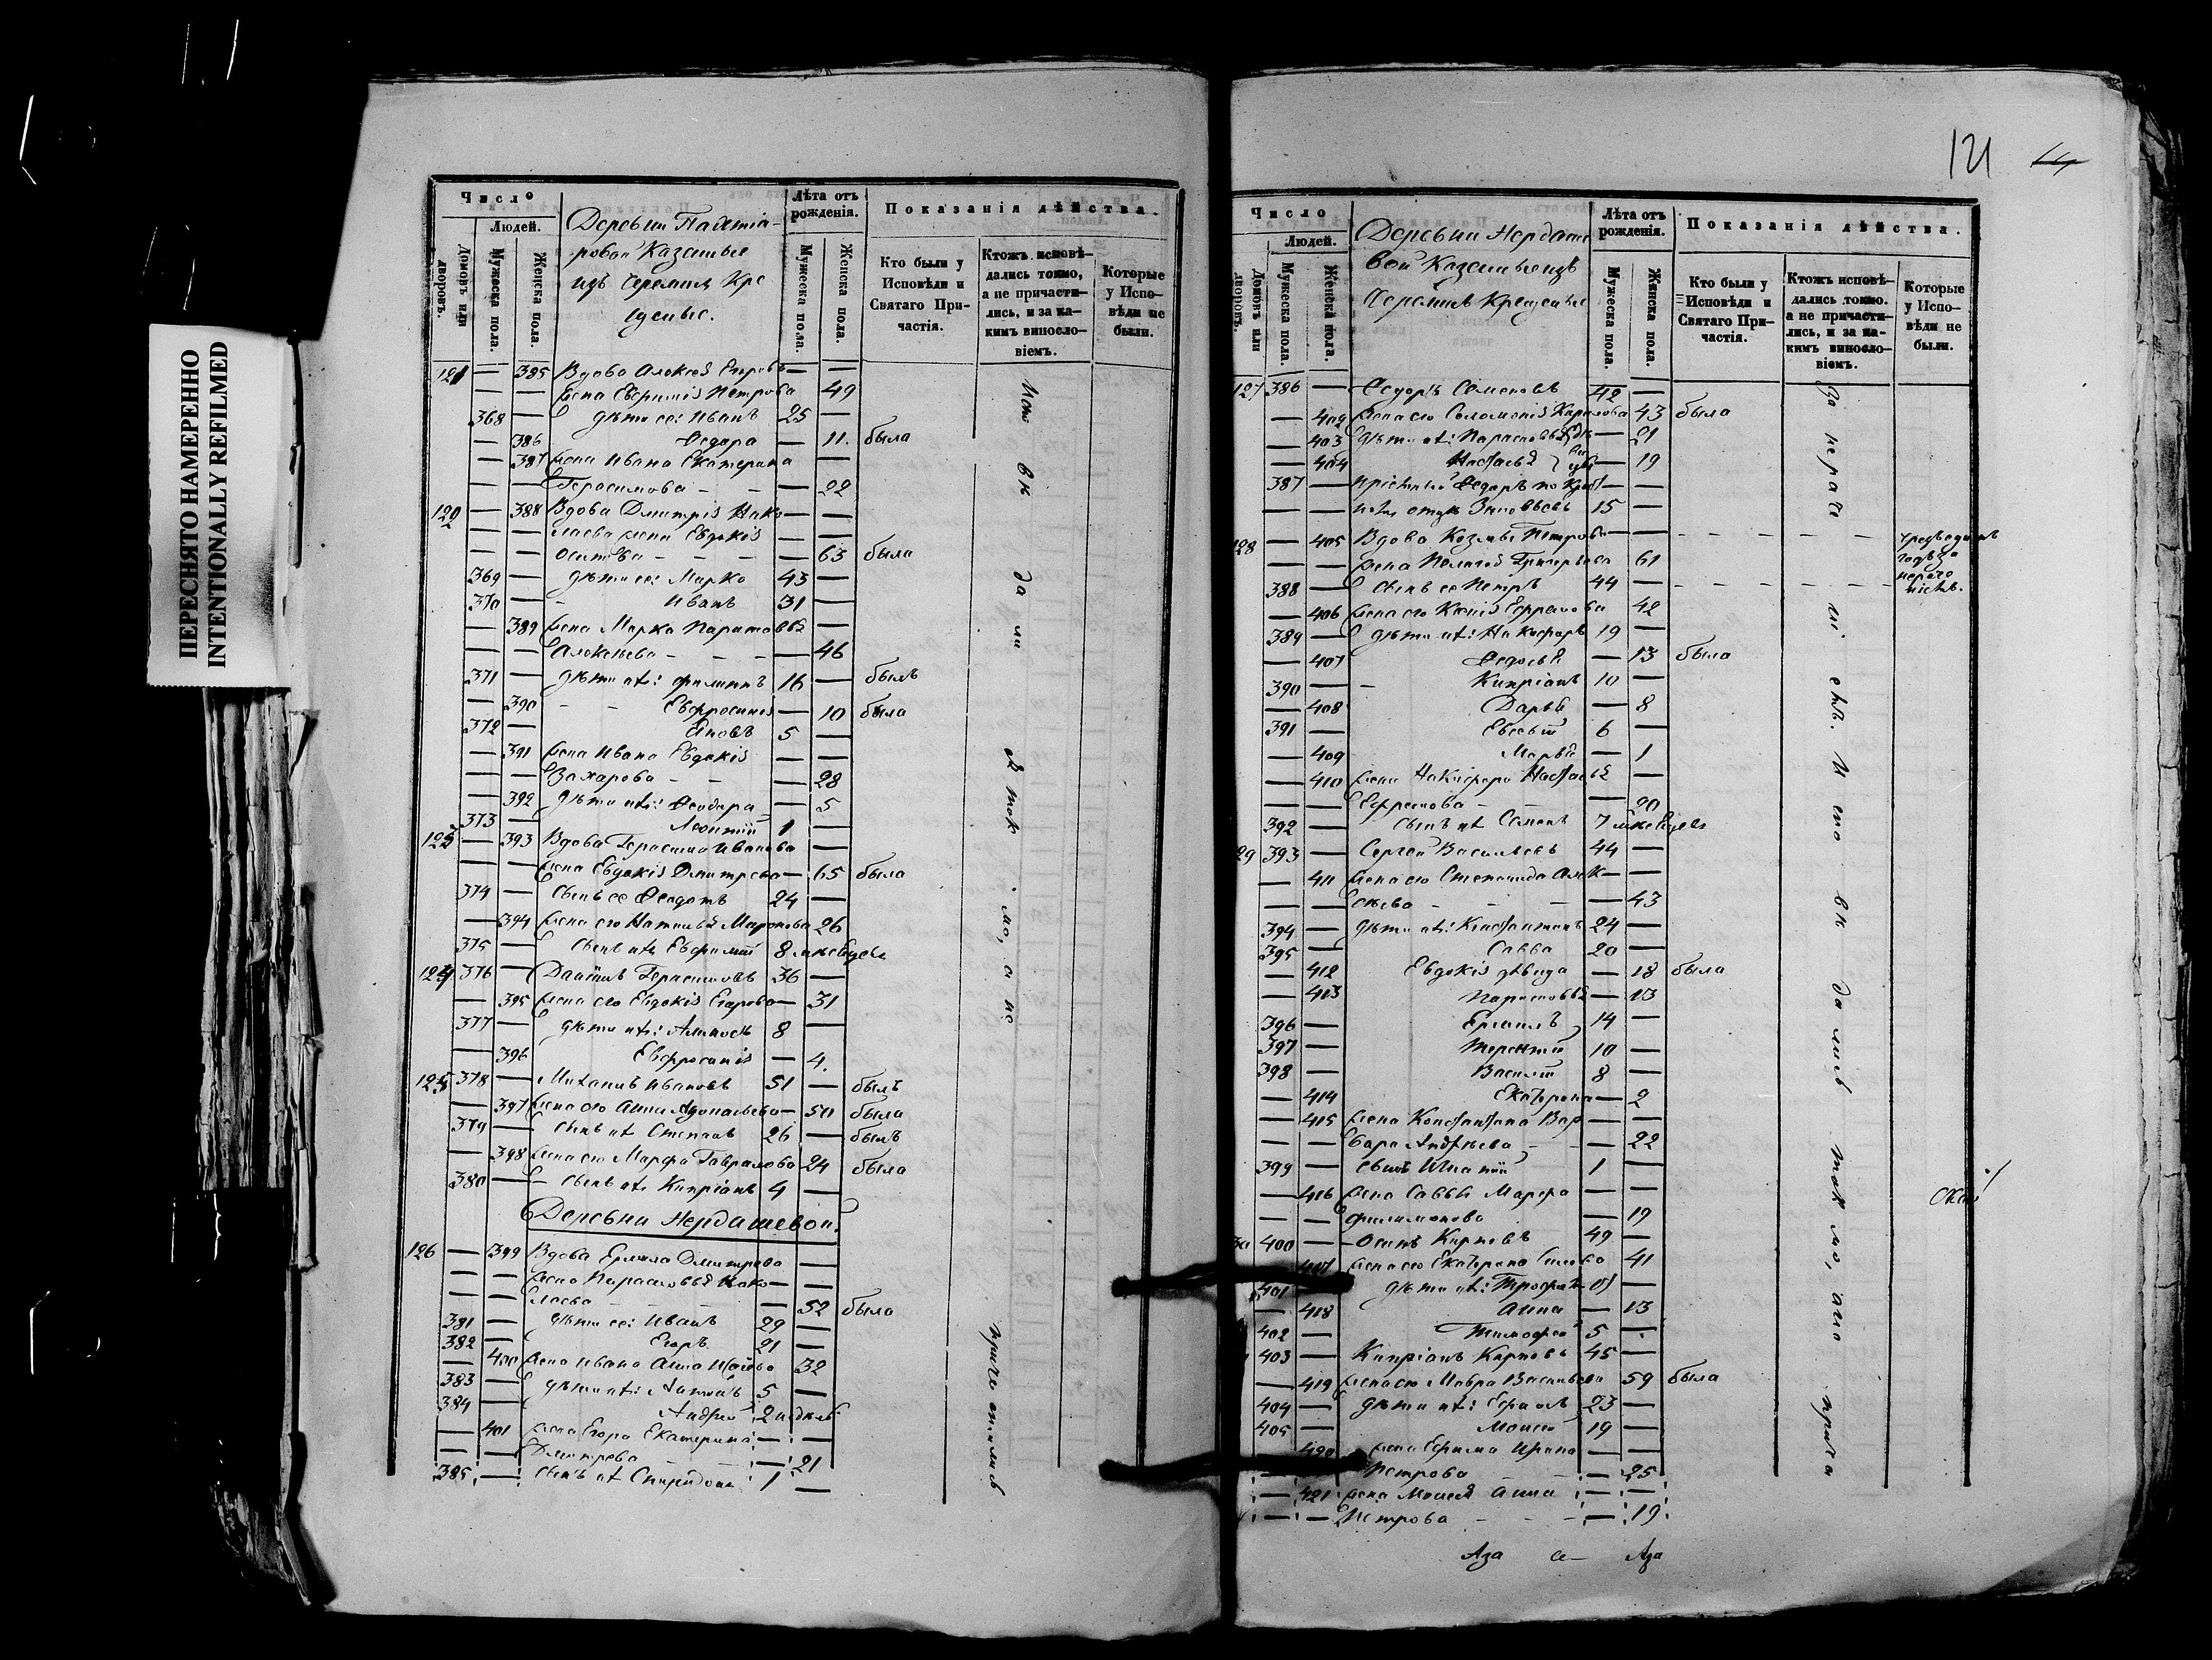 ПЕРЕСНЯТО НАМЕРЕННО
INTENTIONALLY REFILMED
Число
Людей.
Домовъ или дворовъ.
Мужеска пола.
Женска пола.
Деревни
ровой Казенные
изъ Черемисъ Кре
щеные.
Лѣта отъ рожденія.
Мужеска пола.
Женска пола.
Показанія дѣйства.
Кто были у Исповѣди и Святаго Причастія.
Ктожъ исповѣдались токмо, а не причастились, и за какимъ винословіемъ.
Которые у Исповѣди не были.
121 — 385 Вдова Алексѣя Егорова — —
жена Евфимія Петрова 49
368 — дѣти ее: Иванъ 25 —
— 386 Федора — 11. была
— 387 жена Ивана Екатерина —
Герасимова — 22
122 — 388 Вдова Димитрія Нико — —
лаева жена Евдокія — —
Осипова — 63 была
369 — дѣти ее: Марко 43 —
370 — Иванъ 31 —
— 389 жена Марка Парасковья —
Алексѣева — 46
371 — дѣти ихъ: Филиппъ 16 — былъ
— 390 Евфросинія — 10 была
372 — Яковъ 5 —
— 391 жена Ивана Евдокія —
Захарова — 28
— 392 дѣти ихъ: Феодора — 5
373 — Леонтій 1 —
123 — 393 Вдова Герасима Иванова —
жена Евдокія Дмитрева — 65 была
374 — сынъ ее Федотъ 24 —
— 394 жена его Наталья Миронова 26
375 — сынъ ихъ Евфимій 8 мѣсяцевъ
124 376 — Даніилъ Герасимовъ 36 —
— 395 жена его Евдокія Егорова — 31
377 — дѣти ихъ: 8 —
— 396 Евфросинія — 4.
125 378 — Михаилъ Ивановъ 51 — былъ
— 397 жена его Анна Афонасьева — 50 была
379 — сынъ ихъ Степанъ 26 — былъ
— 398 жена его Марфа Гаврилова 24 была
380 — сынъ ихъ Кипріанъ 4 —
Деревни Нердашевой.
126 — 399 Вдова Ермила Дмитрева —
жена Парасковья Нико —
лаева — 52 была
381 — дѣти ее: Иванъ 29 —
382 — Егоръ 21 —
— 400 жена Ивана Анна Исаева 32
383 — дѣти ихъ: 5 —
384 — Андрей 2 недѣль
— 401 жена Егора Екатерина — —
Дмитрева — 21
385 — сынъ ихъ Спиридонъ 1 —
Исповѣдались токмо, а не причастились
121
Число
Людей.
Домовъ или дворовъ.
Мужеска пола.
Женска пола.
Деревни Нердаше
вой Казенные изъ
Черемисъ Крещеные
Лѣта отъ рожденія.
Мужеска пола.
Женска пола.
Показанія дѣйства.
Кто были у Исповѣди и Святаго Причастія.
Ктожъ исповѣдались токмо. а не причастились, и за какимъ винословіемъ.
Которые у Исповѣди не были.
127 386 — Федоръ Семеновъ 42 —
— 402 жена его Соломонія Карпова 43 была
— 403 дѣти ихъ: Парасковья — 21
— 404 Настасья — 19
387 — Федоръ по Крест — —
отцѣ Зиновьевъ 15 —
128 — 405 Вдова Козмы Петрова —
жена Пелагея Григорьева 61
388 — сынъ ее Петръ 44 —
— 406 жена его Ксенія Ефремова 42
389 — дѣти ихъ: Никифоръ 19 —
— 407 Федосья — 13 была
390 — Кипріанъ 10 —
— 408 Дарья — 8
391 — Евсевій 6 —
— 409 Марья — 1
— 410 жена Никифора Настасья —
Ефремова — 20
392 — сынъ ихъ Семенъ 7 мѣсяцевъ
129 393 — Сергей Васильевъ 44 —
— 411 жена его Степанида Алек — —
сеева — 43
394 — дѣти ихъ: Константинъ 24 —
395 — Савва 20 —
— 412 Евдокія дѣвица — 18 была
— 413 Парасковья — 13
396 — Ермилъ 14 —
397 — Терентій 10 —
398 — Василій 8 —
— 414 Екатерина — 2
— 415 жена Константина Вар — —
вара Андреева — 22
399 — сынъ Игнатій 1 —
— 416 жена Саввы Марфа — —
Филимонова — 19
130 400 — Осипъ Карповъ 49 —
417 жена его Екатерина 41
401 дѣти ихъ: Трофимъ —
— 418 Анна — 13
402 — Тимофей 5 —
403 — Кипріанъ Карповъ 45 —
— 419 жена его Мавра Васильева 59 была
404 — дѣти ихъ: Ефимъ 23 —
405 — Моисей 19 —
420 жена Ефима Ирина — —
Петрова — 25
— 421 жена Моисея Анна — —
Петрова — 19.
За нераченіемъ. Исповѣдались токмо, а не причас